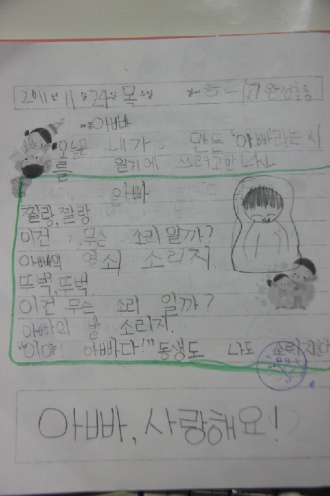 2011년 11월 24일 목요일 날씨
아빠
오늘은 내가 만든 '아빠'라는 시를
일기에 쓰려고 한다.
아빠
짤랑, 짤랑
이건 무슨 소리일까?
아빠의 열쇠 소리지.
뚜벅, 뚜벅
이건 무슨 소리 일까?
아빠의 발 소리지.
"이야! 아빠다!" 동생도 나도
아빠, 사랑해요!